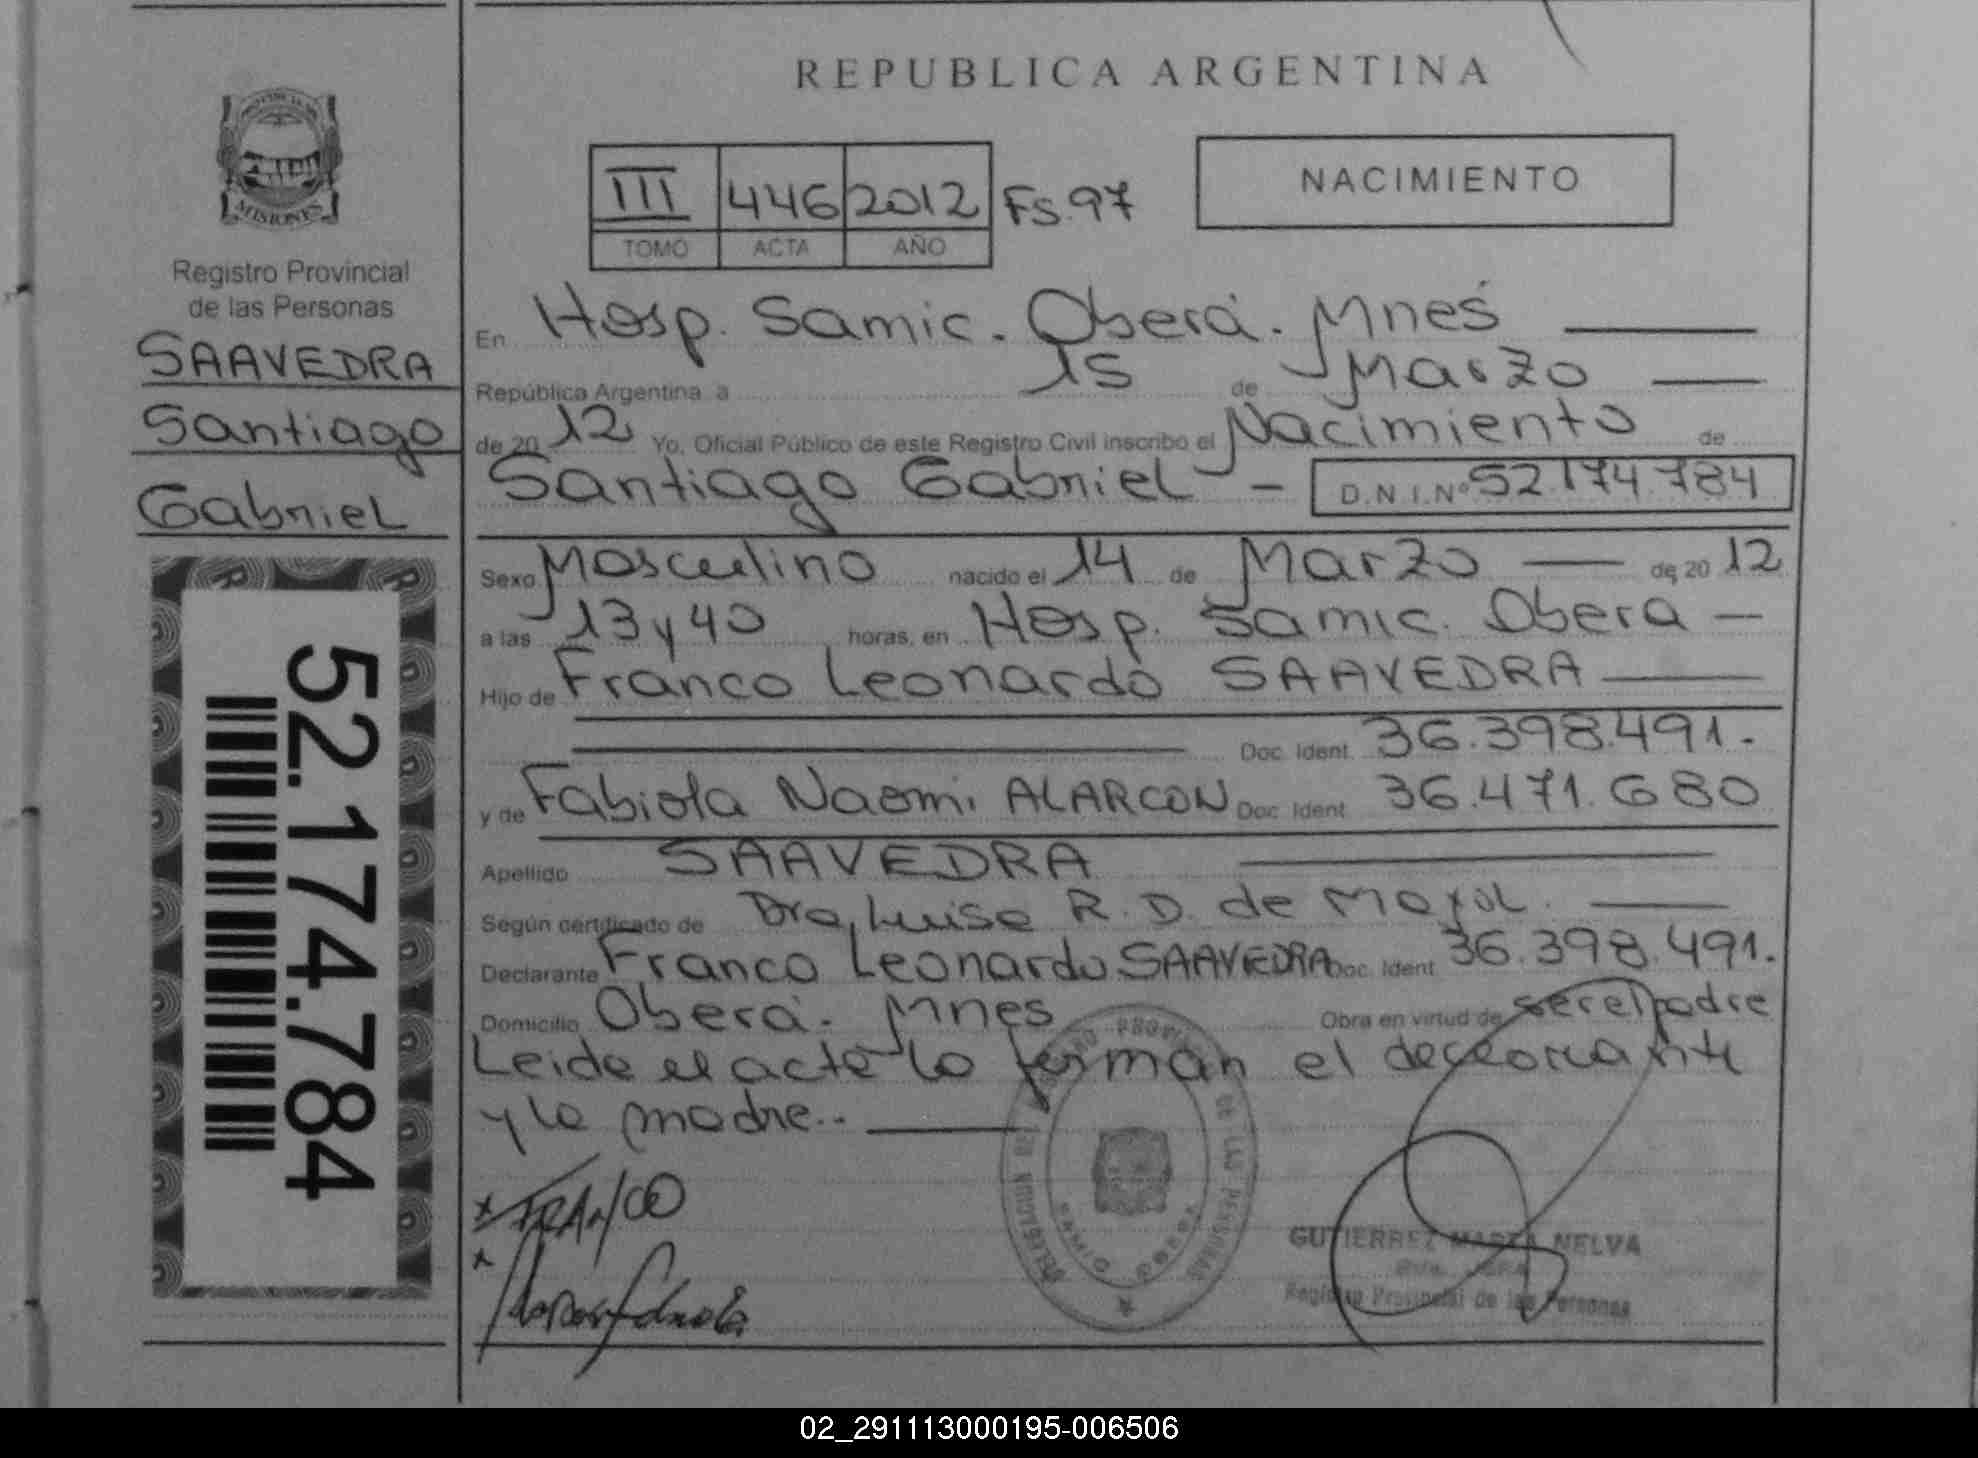 REPUBLICA ARGENTINA
MISIONES
Registro Provincial
de las Personas
SAAVEDRA
Santiago
Gabriel
52.174.784
III 446 2012 Fs. 97
TOMO ACTA AÑO
NACIMIENTO
En Hosp. Samic. Oberá. Mnes
República Argentina a 15 de Marzo
de 20 12 Yo, Oficial Público de este Registro Civil inscribo el Nacimiento de
Santiago Gabriel - D.N.I.Nº 52.174.784
Sexo Masculino nacido el 14 de Marzo de 20 12
a las 13 y 40 horas, en Hosp. Samic. Obera -
Hijo de Franco Leonardo SAAVEDRA
Doc. Ident. 36.398.491.
y de Fabiola Naomi ALARCON Doc. Ident. 36.471.680
Apellido SAAVEDRA
Según certificado de Dra. Luisa R. D. de
Declarante Franco Leonardo SAAVEDRA Doc. Ident. 36.398.491.
Domicilio Oberá. Mnes Obra en virtud de ser el padre
Leida el acta la firman el declarante
y la madre..
x FRANCO
x
REGISTRO PROVINCIAL DE LAS PERSONAS
SAMIC
GUTIERREZ MARTA NELVA
Registro Provincial de las Personas
02_291113000195-006506